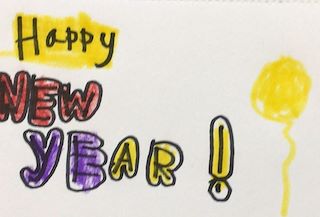 Happy
NEW
YEAR!